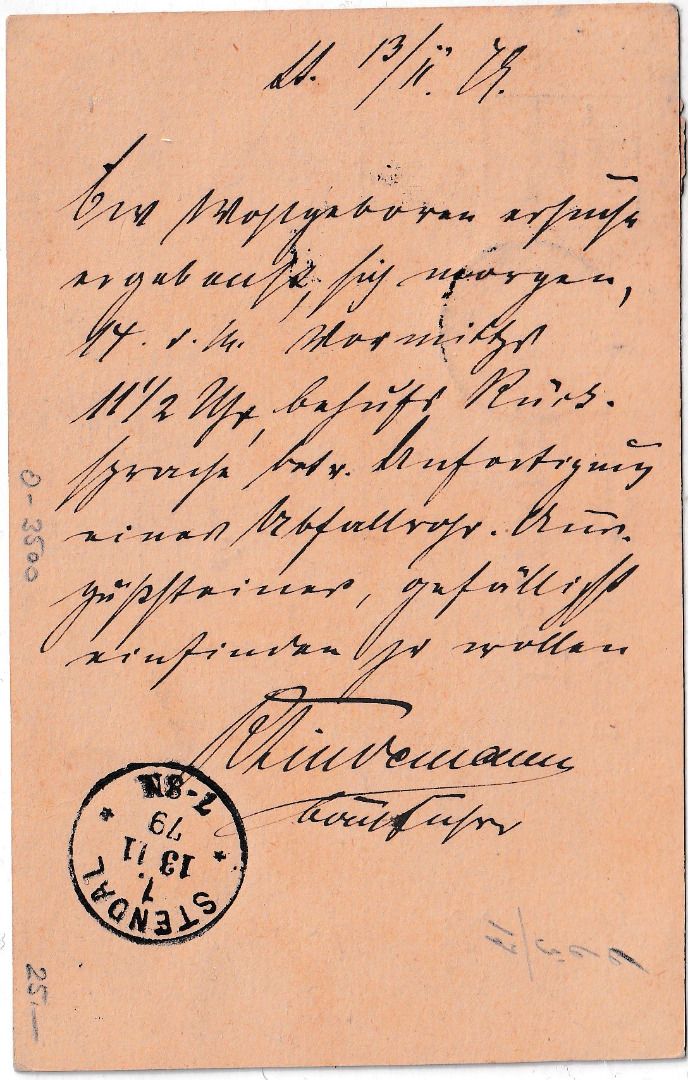 St. 13/11. 79.
Ew Wohlgeboren ersuche
ergebenst, sich morgen,
14. d. M. Vormittgs
11 1/2 Uhr, behufs Rück-
sprache betr. Anfertigung
eines Abfallrohr-Aus-
gußsteines, gefälligst
einfinden zu wollen
Lindemann
Bauführer
STENDAL
1.
13 11
79
7-8N
0-3500
25.—